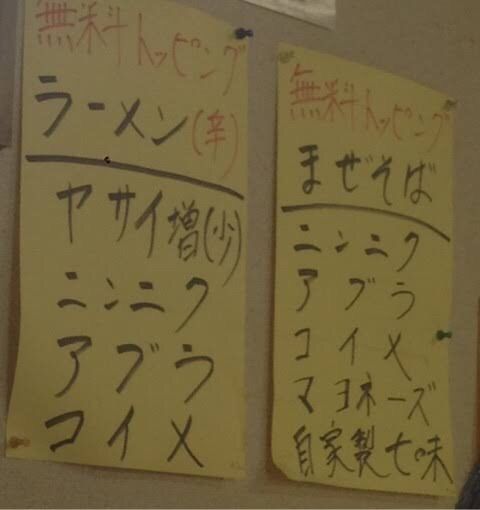 無料トッピング
ラーメン(辛)
ヤサイ増(少)
ニンニク
アブラ
コイメ
無料トッピング
まぜそば
ニンニク
アブラ
コイメ
マヨネーズ
自家製七味